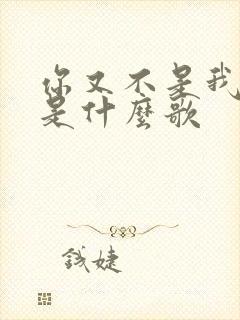 你又不是我
是什麼歌
錢婕